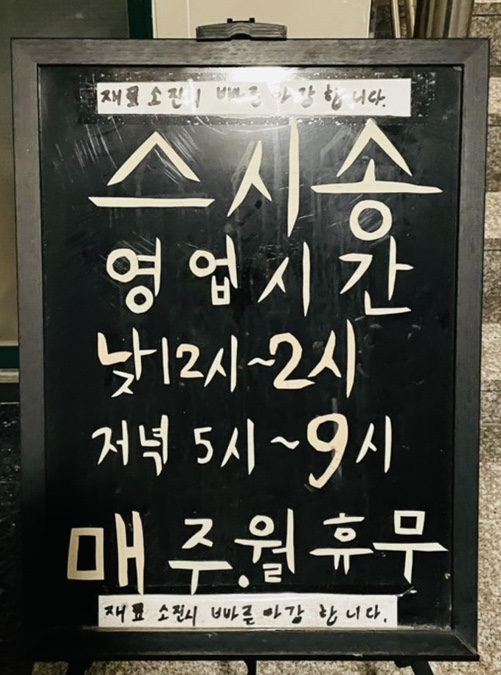 재료 소진시 빠른 마감 합니다.
스시송
영업시간
낮12시~2시
저녁 5시~9시
매주.월휴무
재료 소진시 빠른 마감 합니다.